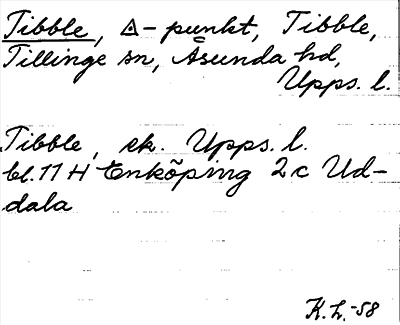 Tibble, △-punkt, Tibble,
Tillinge sn, Åsunda hd,
Upps. l.
Tibble, ek. Upps. l.
bl. 11 H Enköping 2c Ud-
dala
K.L.-58